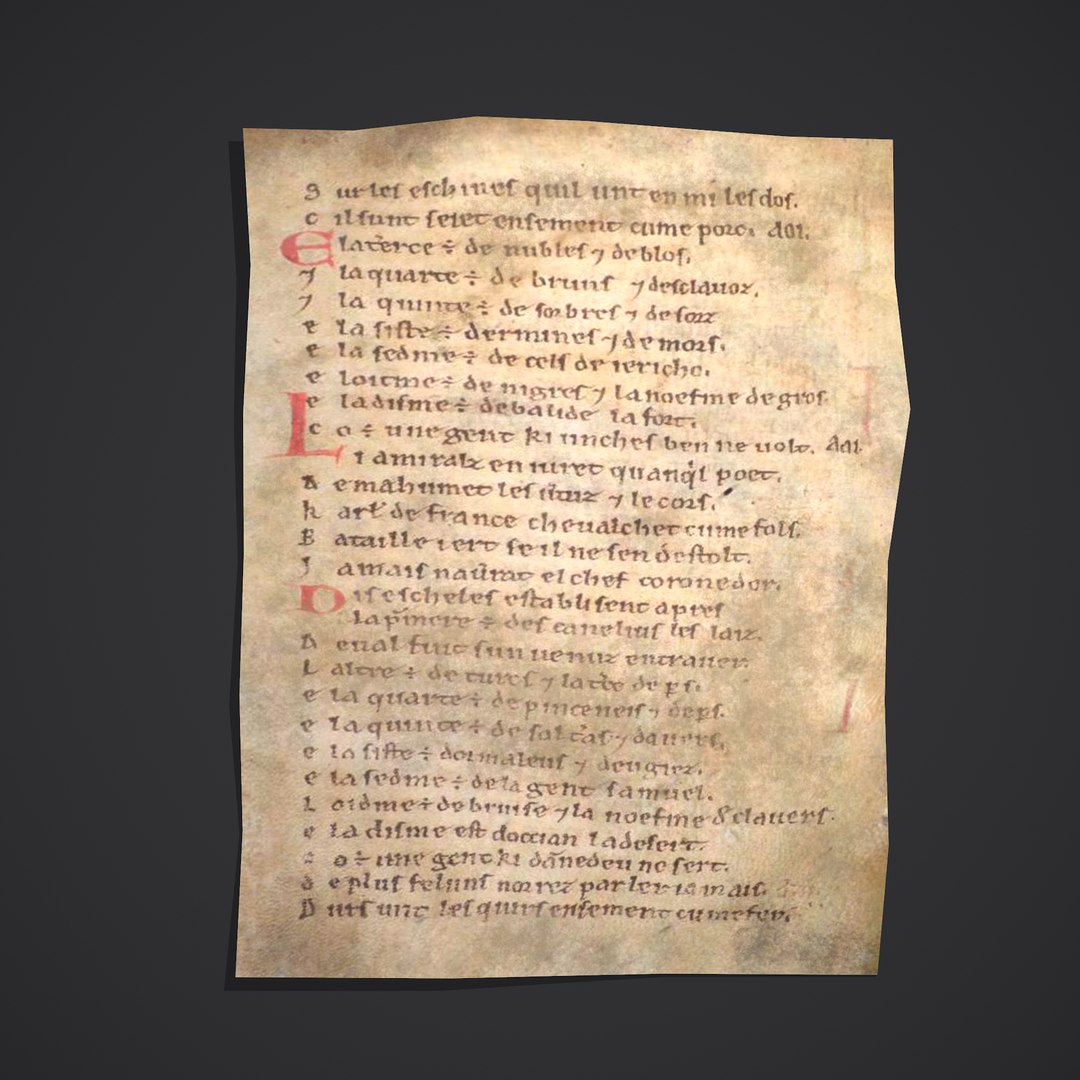 S ur les eschines quil unt en mi les dos.
c il sunt seiet ensement cume porc. AOI.
E la terce ÷ de nubles ⁊ de blos.
⁊ la quarte ÷ de bruns ⁊ desclauoz.
⁊ la quinte ÷ de sorbres ⁊ de sorz
e la siste ÷ dermines ⁊ de mors.
e la sedme ÷ de cels de iericho.
e loitme ÷ de nigres ⁊ la noefme de gros.
e la disme ÷ de balide la fort.
c o ÷ une gent ki unches ben ne uolt. AOI.
L i amiralz en iuret quanq̇l poet.
D e mahumet les ũtuz ⁊ le cors.
K arł de france cheualchet cume fols.
B ataille i ert se il ne sen destolt.
J amais naũrat el chef corone dor.
D is escheles establisent apres
la p̃mere ÷ des canelius les laiz.
D e ual fuit sun uenuz entrauer.
L altre ÷ de turcs ⁊ la tc̃e de ꝑs.
e la quarte ÷ de pinceneis ⁊ de ꝑs.
e la quinte ÷ de solt̃as ⁊ dauers.
e la siste ÷ dormaleus ⁊ deugiez.
e la sedme ÷ de la gent samuel.
L oidme ÷ de bruise ⁊ la noefme declauers.
e la disme est doccian la desert.
c o ÷ une gent ki dãnedeu ne sert.
d e plus feluns norrez parler iamais.
D urs unt les quirs ensement cume fer.